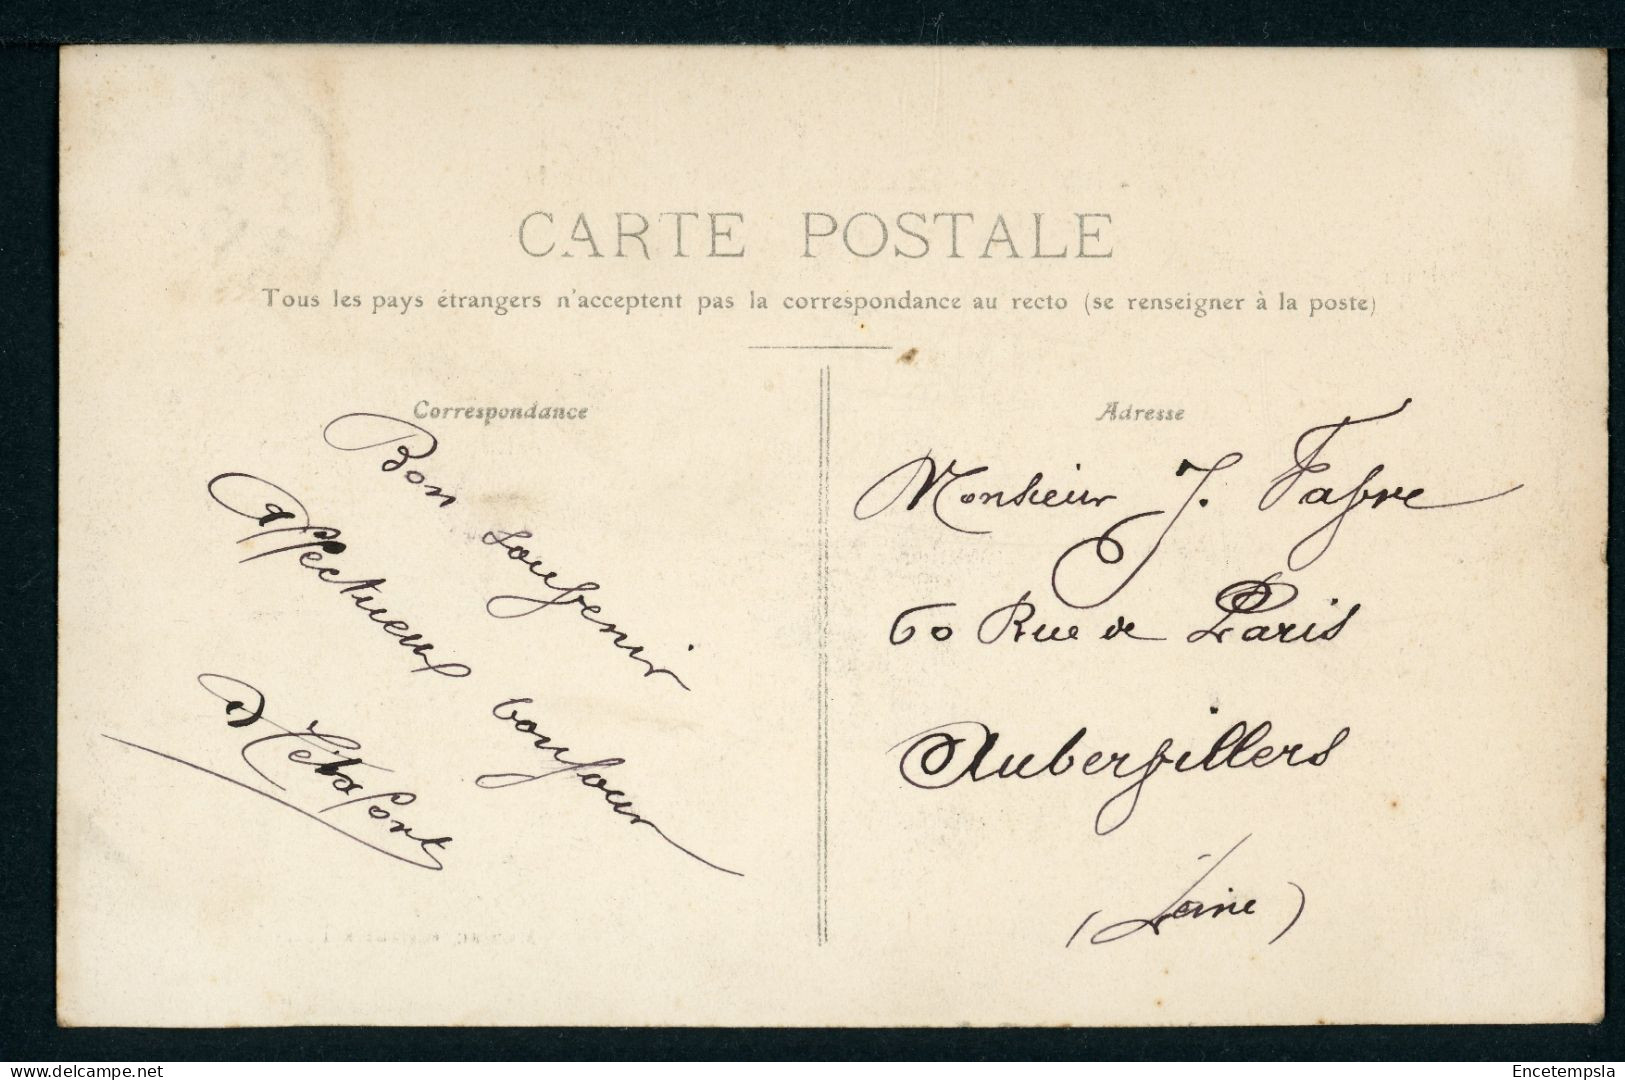 CARTE POSTALE
Tous les pays étrangers n'acceptent pas la correspondance au recto (se renseigner à la poste)
Correspondance
Bon souvenir
Affectueux bonjour
Adresse
Monsieur J. Fabre
60 Rue de Paris
Aubervillers
(Seine)
delcampe.net
Encetempsla